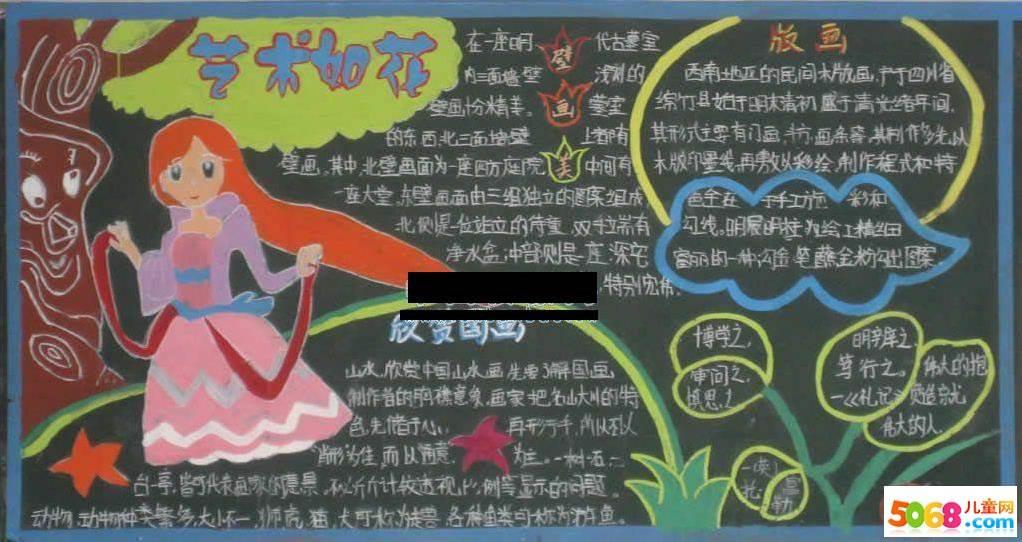 艺术如花
在一座明 代古墓室
内三面墙壁 浅刻的
壁画十分精美。 墓室
的东西北三面墙壁 上都有
壁画。其中,北壁画面为一座四方庭院 中间有
一座大堂,东壁画面由三组独立的图案组成
北侧是一位站立的侍童,双手端着
净水盆,中部则是一座深宅
,特别宏伟.
壁
画
美
版画
西南地区的民间木版画,产于四川省
绵竹县始于明末清初盛于清光绪年间。
其形式主要有门画,斗方,画条等,其制作多先以
木版印墨线,再敷以彩绘,制作程式和特
色全在 于手工 彩和
勾线。明展明挂为绘工精细
富丽的一种,勾金笔蘸金粉勾出图案。
欣赏国画
山水,欣赏中国山水画先要了解国画
制作者的胸襟意象。画家把名山大川的特
色先储于心, 再形于手,所以不以
为佳,而以 为主。一树一石,一
台一亭,皆可代表画家的意景,不必斤斤计较透视比例等显示的问题。
动物,动物种类繁多,大小不一,狮,虎,猫,犬可称为走兽,各种鱼类可称为
博学之,
审问之,
慎思之
明辨之,
笃行之。
一《礼记》
伟大的抱
负造就
伟大的人.
5068儿童网
.com